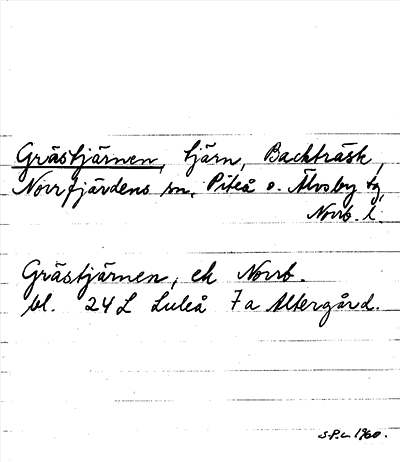 Grästjärnen, tjärn, Backträsk,
Norrfjärdens sn, Piteå o. Älvsby tg,
Norrb. l.
Grästjärnen, ek Norrb.
bl. 24 L Luleå 7 a Altergård.
S.P.L. 1960.